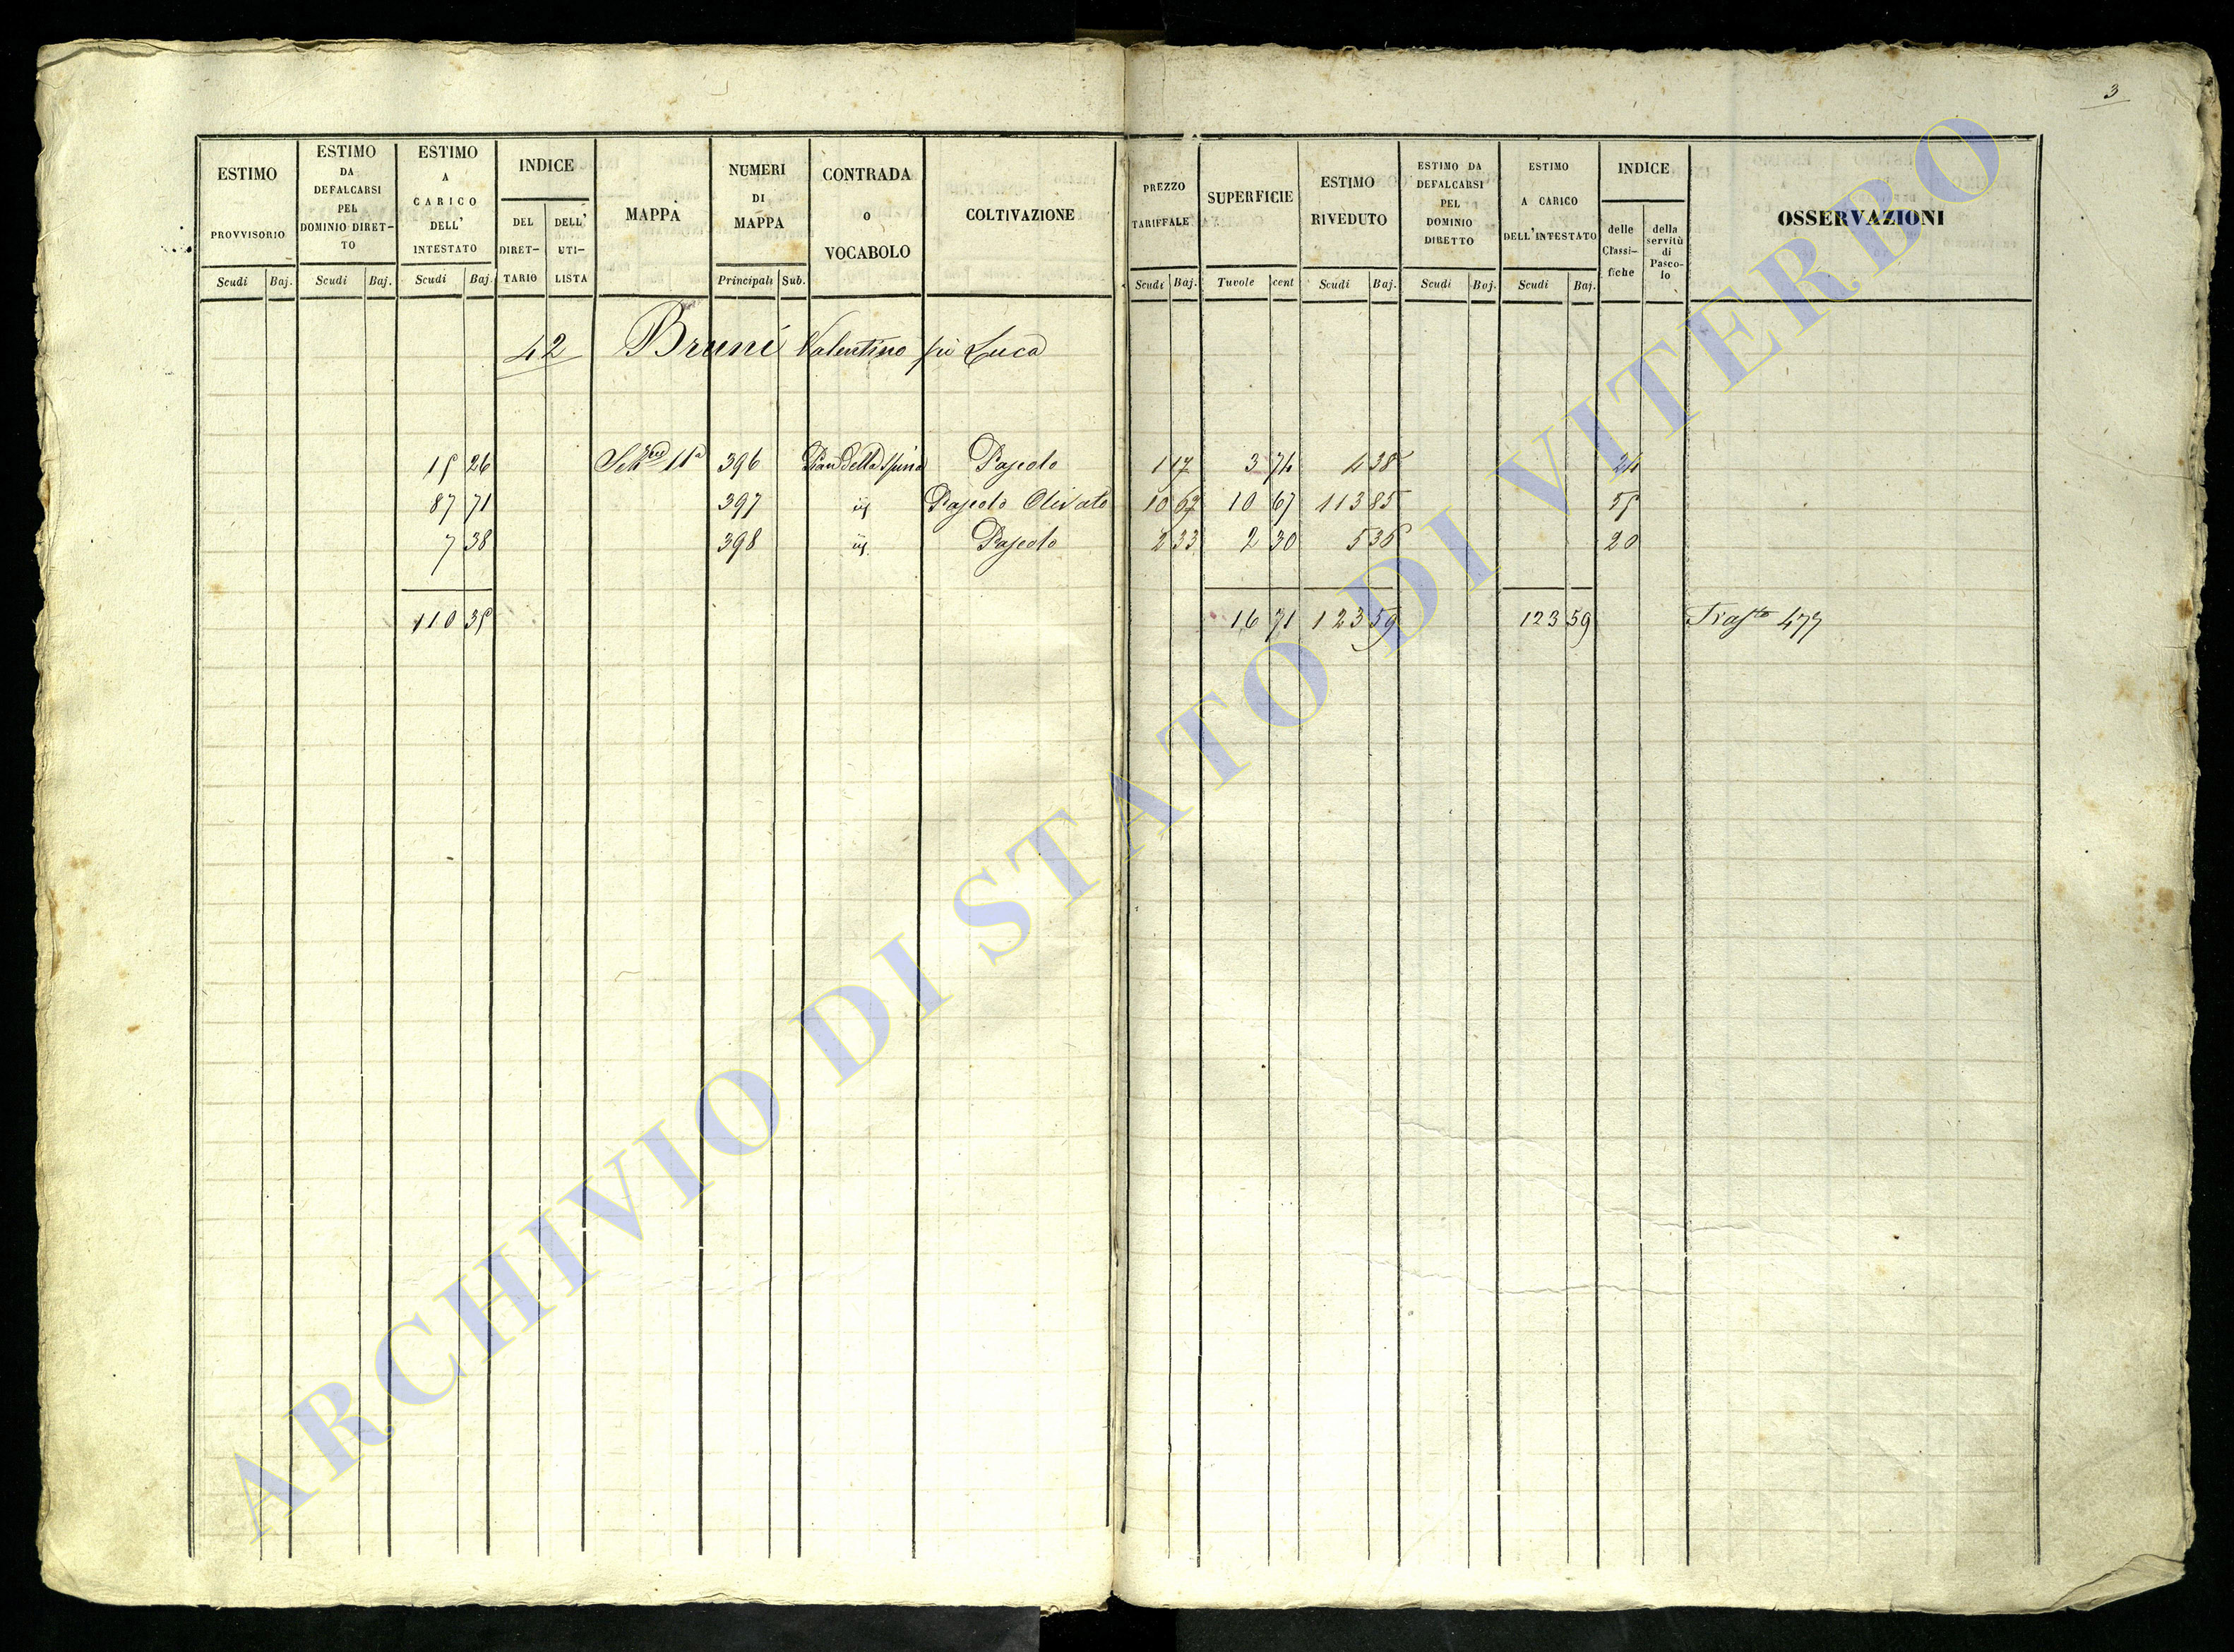 3
ESTIMO PROVVISORIO
ESTIMO DA DEFALCARSI PEL DOMINIO DIRET-TO
ESTIMO A CARICO DELL' INTESTATO
INDICE
DEL DIRET-TARIO
DELL' UTI-LISTA
MAPPA
NUMERI DI MAPPA
CONTRADA o VOCABOLO
COLTIVAZIONE
PREZZO TARIFFALE
SUPERFICIE
ESTIMO RIVEDUTO
ESTIMO DA DEFALCARSI PEL DOMINIO DIRETTO
ESTIMO A CARICO DELL'INTESTATO
INDICE
delle Classi-fiche
della servitù di Pasco-lo
OSSERVAZIONI
Scudi Baj. Scudi Baj. Scudi Baj. Principali Sub. Scudi Baj. Tavole cent Scudi Baj. Scudi Baj. Scudi Baj.
42 Bruni Valentino fu Luca
15 26 11ª 396 Pian della Spina Pascolo 1 17 3 74 4 38 24
87 71 397 Pascolo Olivato 10 67 10 67 113 85 55
7 38 398 Pascolo 2 33 2 30 5 36 20
110 35 16 71 123 59 123 59 Traſto 477
ARCHIVIO DI STATO DI VITERBO